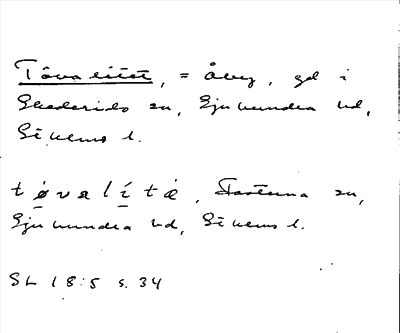 Tôvalitet, = Åby, gd i
Skederids sn, Sjuhundra hd,
Sthlms l.
tøvalítė, Fasterna sn,
Sjuhundra hd, Sthlms l.
SL 18:5 s. 34